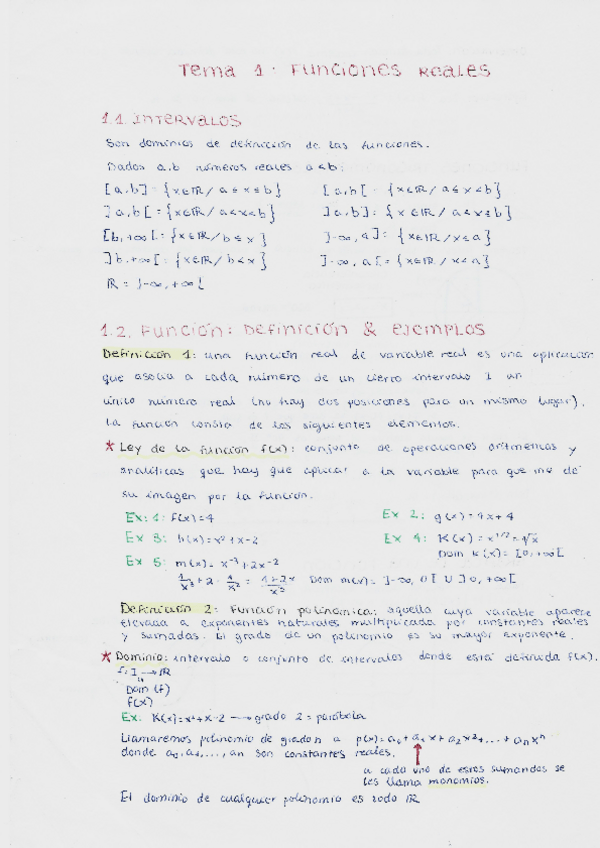 Tema 1: Funciones Reales
1.1 Intervalos
Son dominios de definición de las funciones.
Dados a,b números reales a<b:
[a,b] = {x∈ℝ / a≤x≤b} [a,b[ = {x∈ℝ / a≤x<b}
]a,b[ = {x∈ℝ / a<x<b} ]a,b] = {x∈ℝ / a<x≤b}
[b,+∞[ = {x∈ℝ / b≤x} ]-∞,a] = {x∈ℝ / x≤a}
]b,+∞[ = {x∈ℝ / b<x} ]-∞,a[ = {x∈ℝ / x<a}
ℝ = ]-∞,+∞[
1.2. Función: Definición & ejemplos
Definición 1: una función real de variable real es una aplicación
que asocia a cada número de un cierto intervalo I un
único número real (no hay dos posiciones para un mismo lugar).
La función consta de los siguientes elementos.
* Ley de la función f(x): conjunto de operaciones aritméticas y
analíticas que hay que aplicar a la variable para que me dé
su imagen por la función.
Ex: 1: f(x)=4 Ex 2: g(x)=4x+4
Ex 3: h(x)=x²+x-2 Ex 4: K(x)=x^1/2=√x
Dom K(x): [0,+∞[
Ex 5: m(x)=x⁻³+2x⁻²
1/x³+2·1/x²=1+2x/x³ Dom m(x): ]-∞,0[ ∪ ]0,+∞[
Definición 2: Función polinómica: aquella cuya variable aparece
elevada a exponentes naturales multiplicada por constantes reales
y sumadas. El grado de un polinomio es su mayor exponente.
* Dominio: intervalo o conjunto de intervalos donde está definida f(x).
f: I → ℝ
Dom (f)
f(x)
Ex: K(x)=x²+x-2 → grado 2 = parábola
Llamaremos polinomio de grado n a p(x)=a₀+a₁x+a₂x²+...+aₙxⁿ
donde a₀,a₁,...,an son constantes reales.
a cada uno de estos sumandos se
les llama monomios.
El dominio de cualquier polinomio es todo ℝ